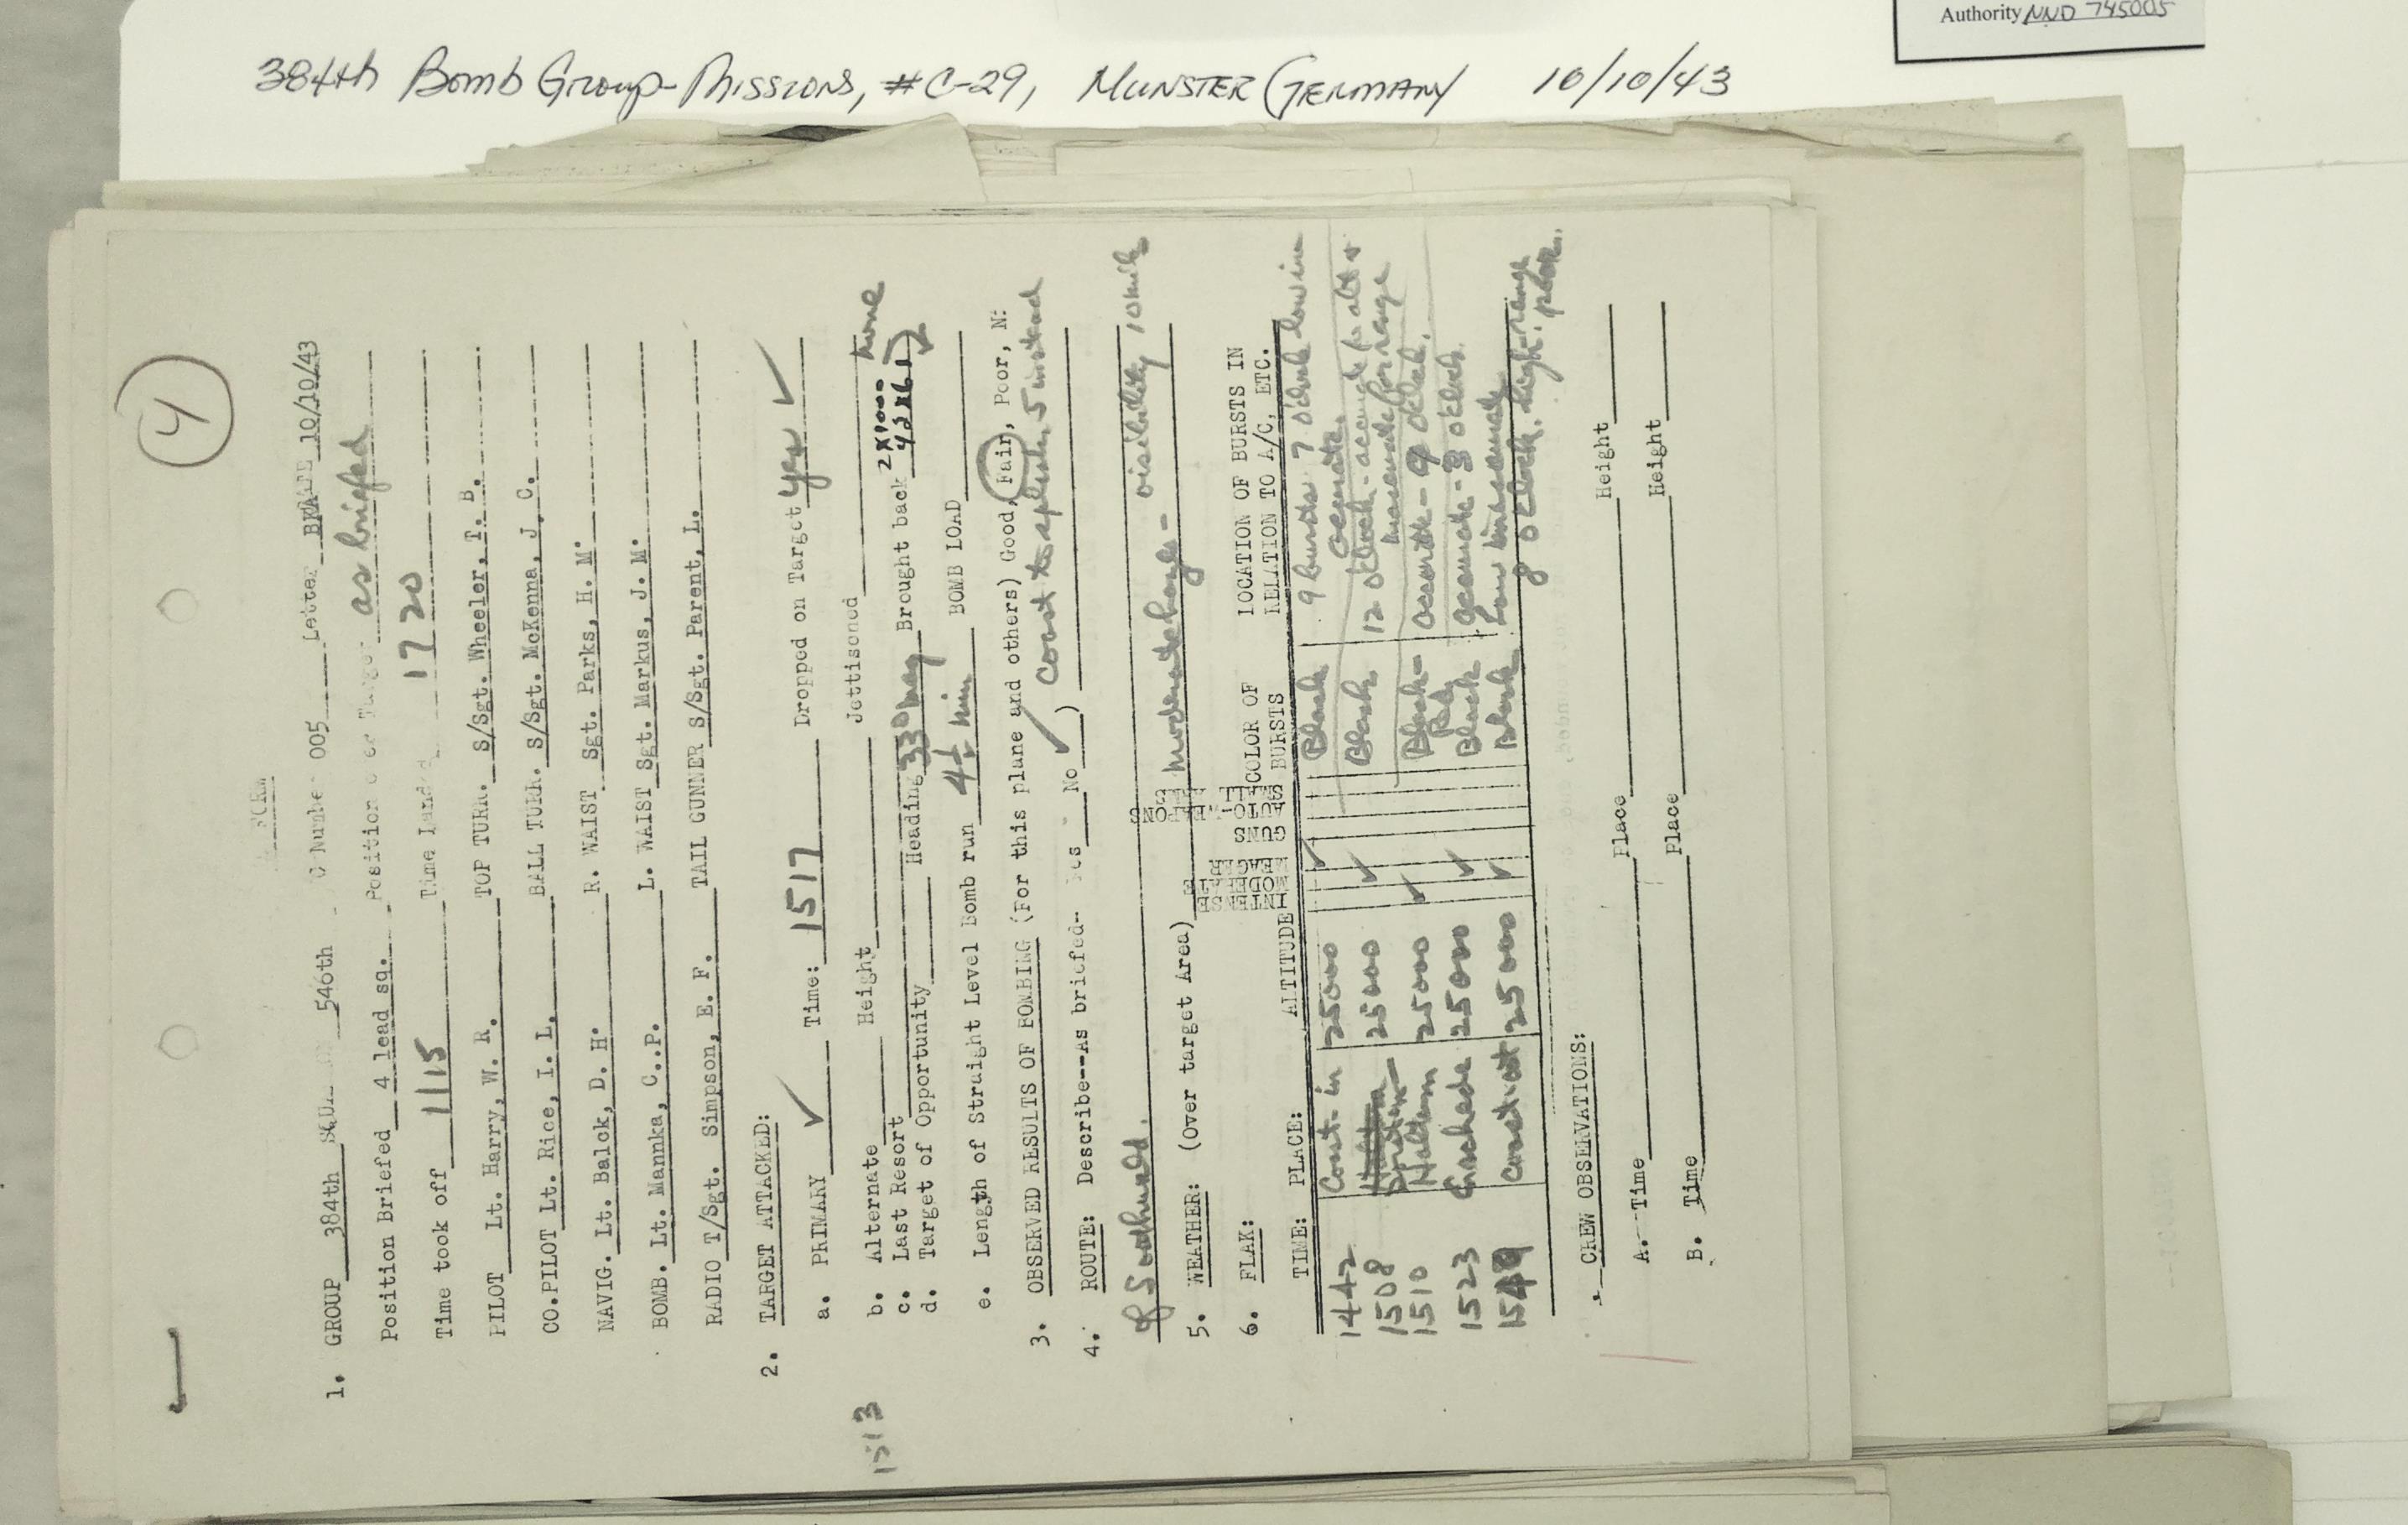 Authority NND 745005
384th Bomb Group-Missions, #C-29, Munster Germany 10/10/43
4
FORM
1. GROUP 384th 546th Number 005 Letter BK 10/10/43
Position Briefed 4 lead sq. Position over Target as briefed
Time took off 1115 Time Landed 1720
PILOT Lt. Harry, W. R. TOP TURR. S/Sgt. Wheeler, T. B.
CO.PILOT Lt. Rice, I. L. BALL TURR. S/Sgt. McKenna, J. C.
NAVIG. Lt. Balck, D. H. R. WAIST Sgt. Parks, H. M.
BOMB. Lt. Mannka, C..P. L. WAIST Sgt. Markus, J. M.
RADIO T/Sgt. Simpson, E. F. TAIL GUNNER S/Sgt. Parent, L.
2. TARGET ATTACKED:
a. PRIMARY ✓ Time: 1517 Dropped on Target yes ✓
1513
b. Alternate Height Jettisoned none
c. Last Resort
d. Target of Opportunity Heading 330 mag Brought back 2 X 1000
e. Length of Straight Level Bomb run 4½ min BOMB LOAD
3. OBSERVED RESULTS OF BOMBING (For this plane and others) Good, Fair, Poor, N:
4. ROUTE: Describe--As briefed-- Yes No ✓ ) Coast to splash, 5 instead
of Southwold.
5. WEATHER: (Over target Area) moderate haze - visibility 10 mils
6. FLAK:
TIME: PLACE: ALTITUDE INTENSE MODERATE MEAGER GUNS AUTO- WEAPONS COLOR OF BURSTS LOCATION OF BURSTS IN RELATION TO A/C, ETC.
1442 Coast in 25000 ✓ Black 9 bursts 7 oclock low in accurate
1508 25000 ✓ Black 12 oclock - accurate for alt + inaccurate for range
1510 Haltern 25000 ✓ Black - Red accurate - 9 oclock,
1523 Enschede 25000 ✓ Black accurate - 3 oclock
1549 coast out 25000 ✓ Black Low inaccurate 8 oclock. high. range poor.
CREW OBSERVATIONS:
A. Time Place Height
B. Time Place Height